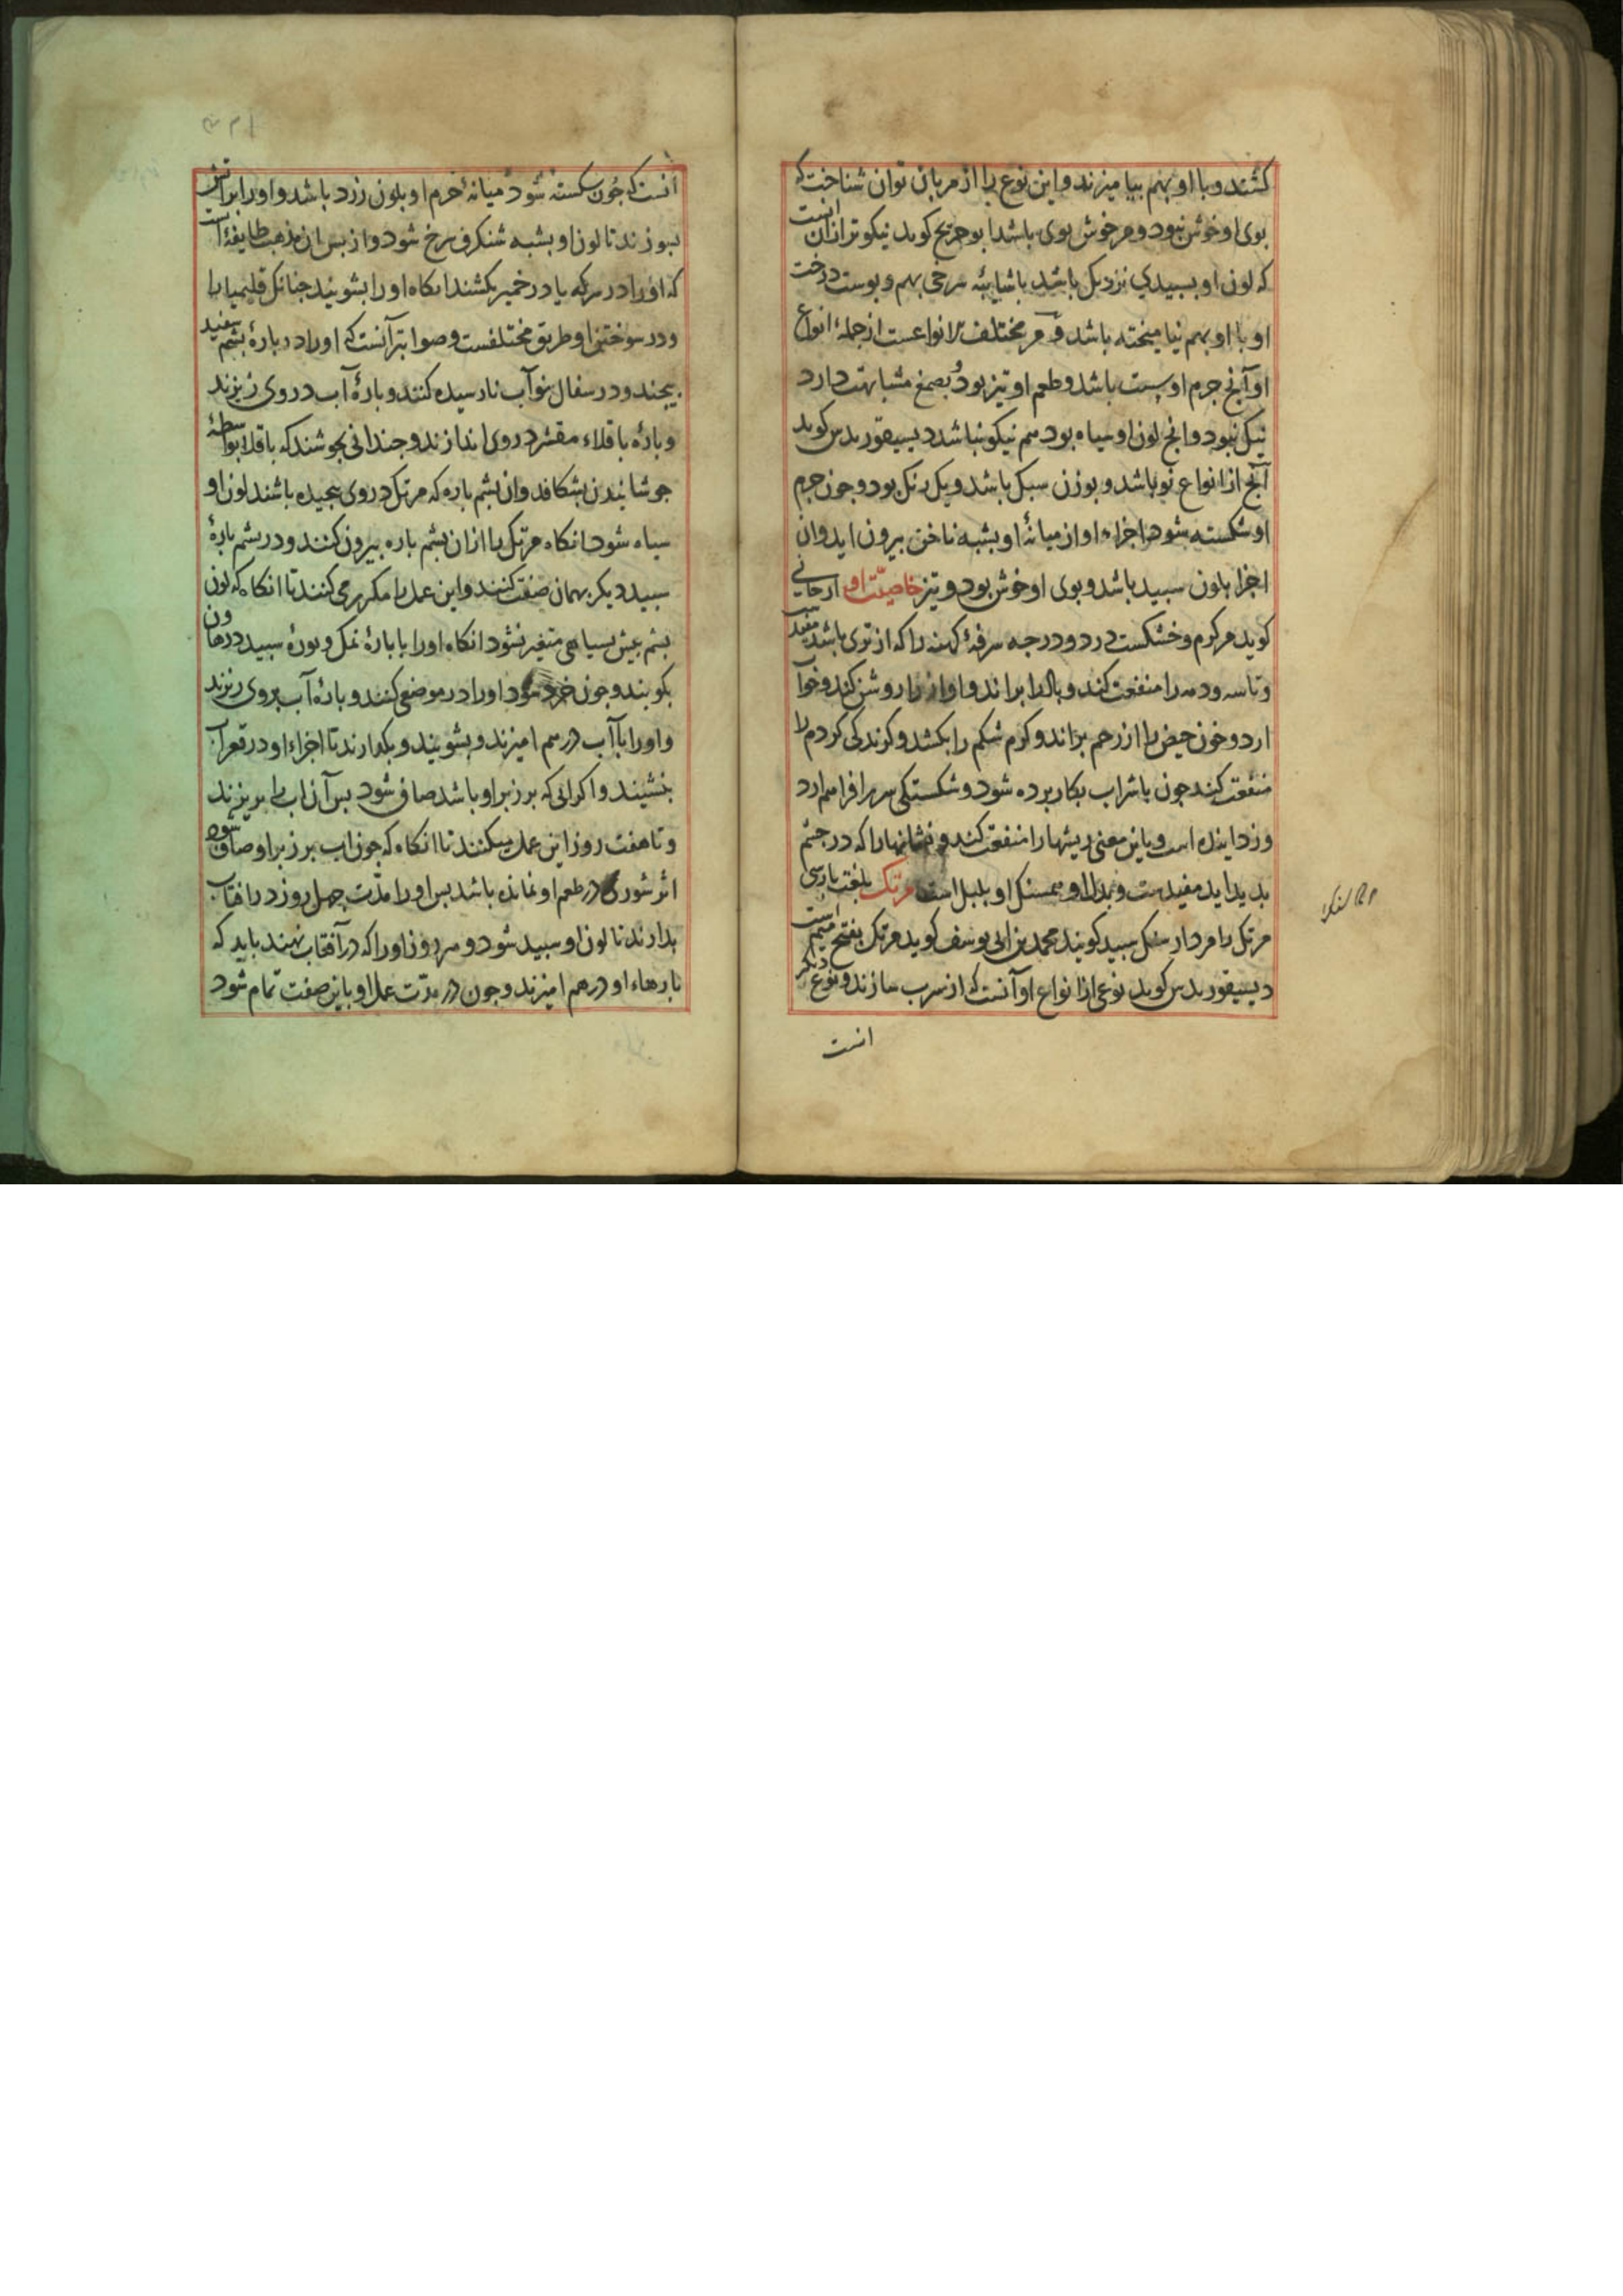 کشند و با او بهم بیامیزند و این نوع را از مربان توان شناخت که
بوی او خوش نبود و مر خوش بوی باشد ابو جریج کوید نیکوترازان انست
که لون او بسبیدی نزدیک باشد باشایبه سرخی بهم و بوست درخت
او با او بهم نیامیخته باشد و مر مختلف الانواعست از جمله انواع
او آنج جرم او بست باشد و طعم او تیز بود بصمغ مشابهت دارد
نیک نبود و انج لون او سیاه بود هم نیکو نباشد دیسیقوریدس کوید
آنج از انواع نو باشد و بوزن سبک باشد و یک رنک بود و جون جرم
او شکسته شود اجزاء او از میانهٔ او بشبه ناخن بیرون اید و ان
اجزا بلون سبید باشد و بوی او خوش بود و تیز خاصیّت او ارجانی
کوید مر کرم و خشکست در دو درجه سرفهٔ کهنه را که از توی باشد مفید
و تاسه و دمه را منفعت کند و باد را براند و اواز را روشن کند و خواب
ارد و خون حیض را از رحم براند و کرم شکم را بکشد و کزندکی کردم را
منفعت کند جون باشراب بکار برده شود و شکستکی سر را فراهم ارد
و زداینده است و باین معنی ریشها را منفعت کند و نشانها را که در جشم
بدید اید مفیدست و بدل او همسنک او بلبل است مرتک بلغت بارسی
مرتک را مردار سنک سبید کویند محمد بن ابی یوسف کوید مرتک بفتح میم است
دیسیقوریدس کوید نوعی از انواع او آنست که از سرب سازند و نوع دیکر
انست
انست که جون شکسته شود میانهٔ جرم او بلون زرد باشد و او را براتش
بسوزند تا لون او بشبه شنکرف سرخ شود و از بس ان مذهب طایفهٔ است
که او را در سرکه یا در خمیر بکشند انکاه او را بشویند جنانک قلیمیا را
و در سوختن او طریق مختلفست و صواب‌تر آنست که او را در بارهٔ بشم سفید
بیجند و در سفال نو آب نارسیده کنند و بارهٔ آب در وی ریزند
و بارهٔ باقلاء مقشر در وی اندازند و جندانی بجوشند که باقلا بواسطهٔ
جوشانیدن بشکافد و ان بشم باره که مرتک در وی بیجیده باشند لون او
سیاه شود انکاه مرتک را ازان بشم باره بیرون کنند و در بشم بارهٔ
سبید دیکر بهمان صفت کنند و این عمل را مکرر می کنند تا انکاه که لون
بشم بیش بسیاهی متغیر نشود انکاه او را با بارهٔ نمک و بورهٔ سبید در هاون
بکوبند و جون خرد شود او را در موضعی کنند و بارهٔ آب بروی ریزند
و او را با آب در هم امیزند و بشویند و بکذارند تا اجزاء او در قعر آب
بنشیند و اکر ابی که بر زبر او باشد صافی شود بس آن اب را بریزند
و تا هفت روز این عمل میکنند تا انکاه که جون اب بر زبر او صافی شود
اثر شوری در طعم او نمانده باشد بس او را مدّت جهل روز در افتاب
بدارند تا لون او سبید شود و هر روز او را که در آفتاب نهند باید که
بارهاء او در هم امیزند و جون در مدّت عمل او باین صفت تمام شود